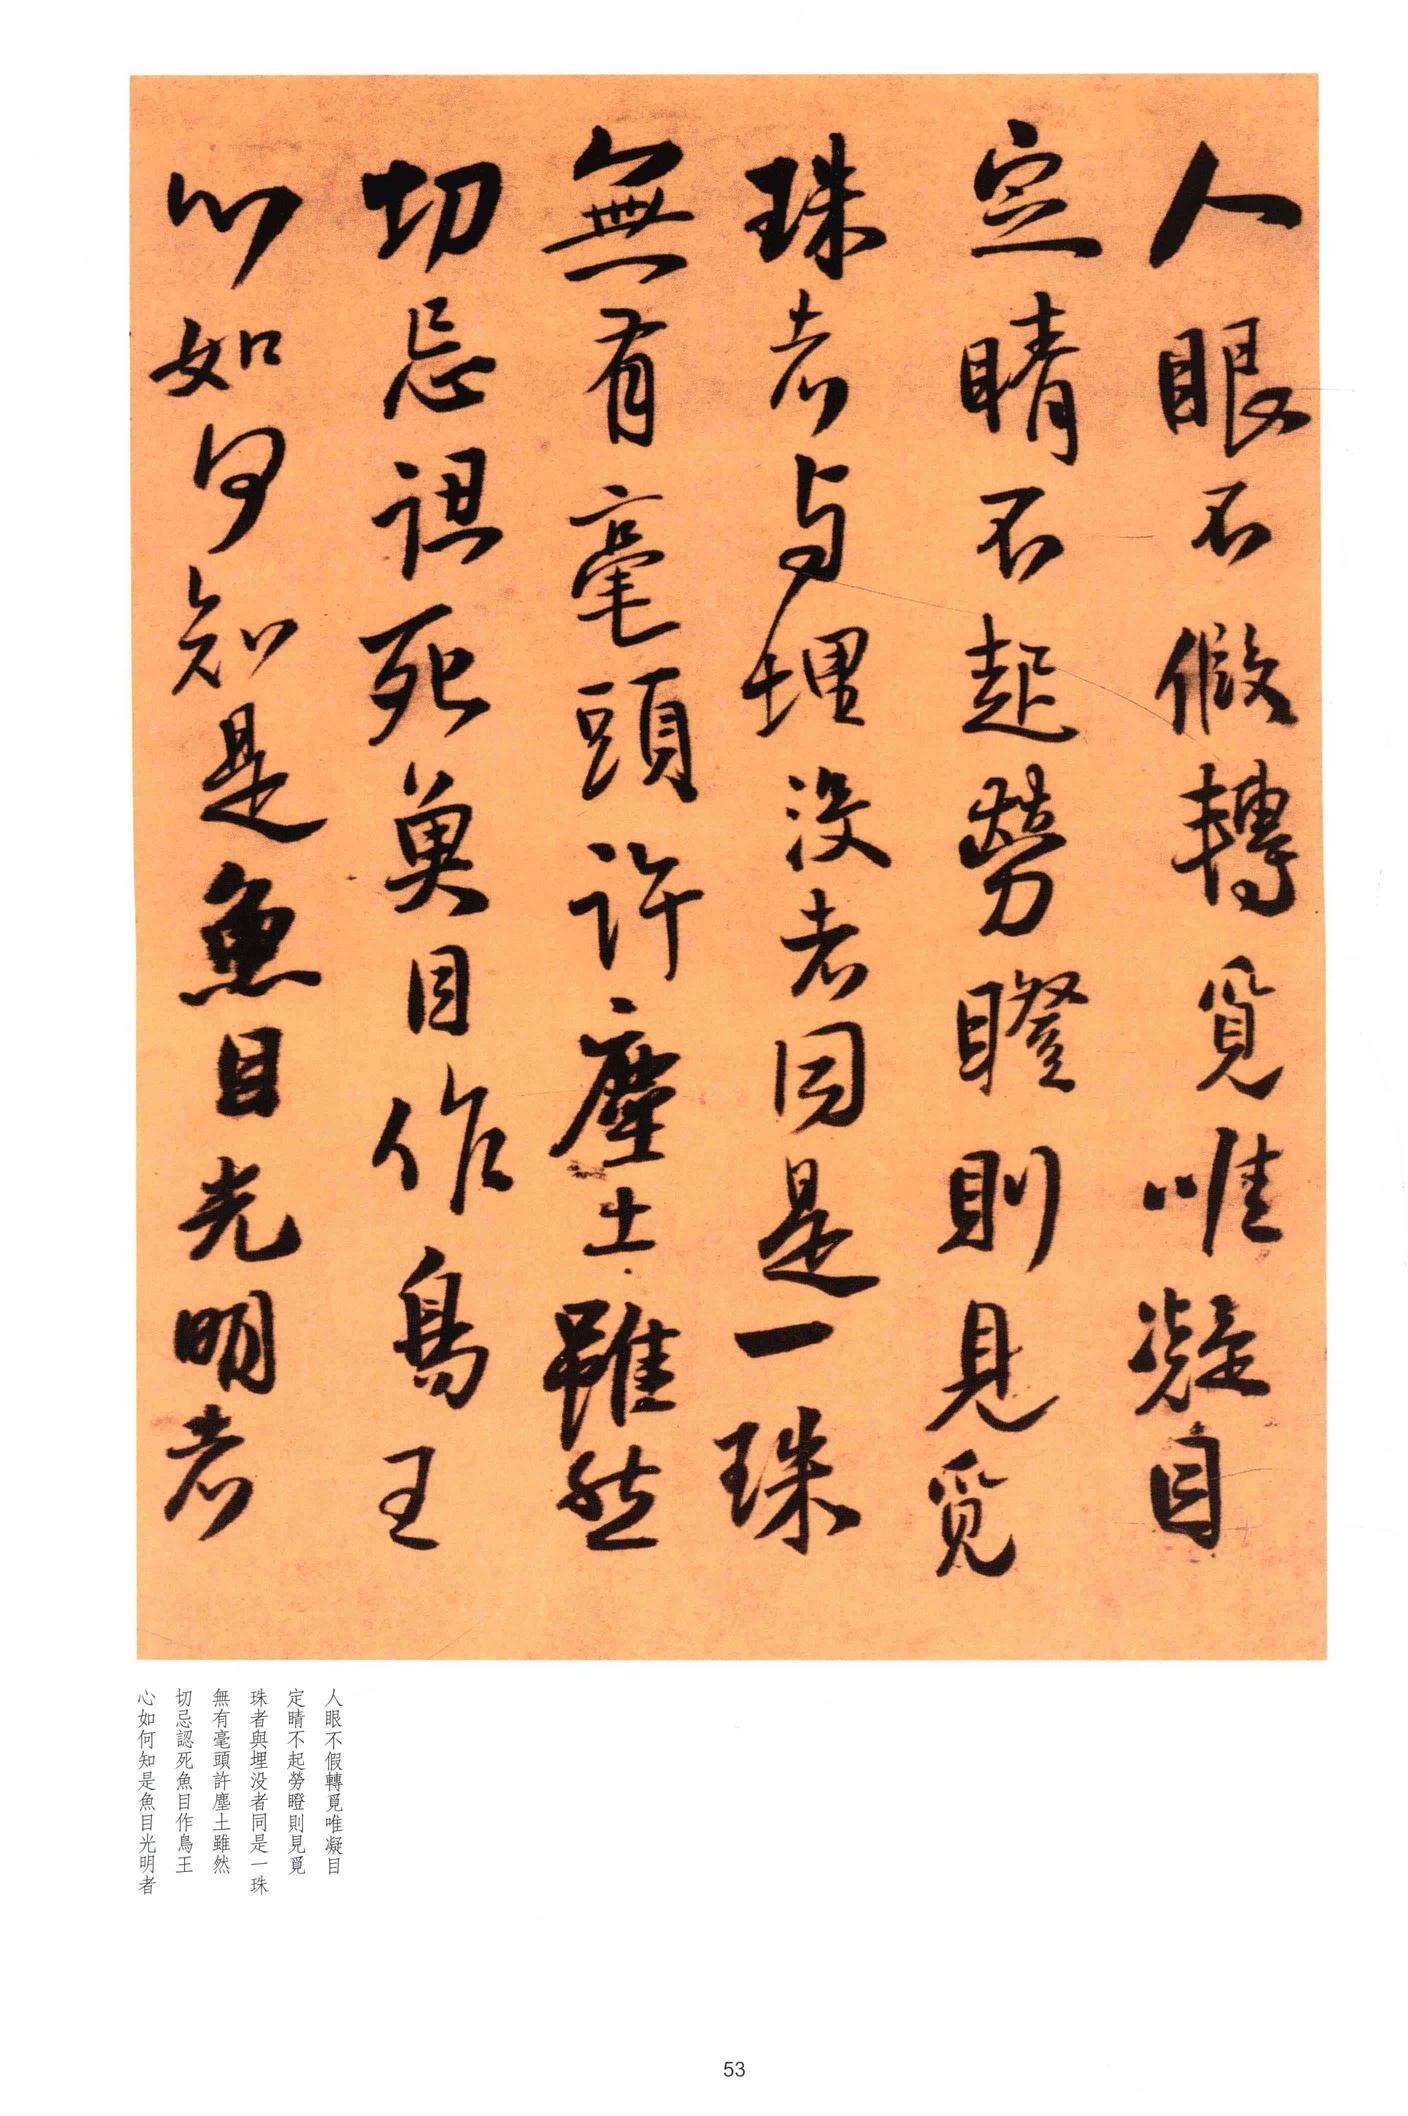 人眼不假轉覓唯凝目
定睛不起勞瞪則見覓
珠者与埋没者同是一珠
無有毫頭許塵土雖然
切忌認死魚目作鳥王
心如何知是魚目光明者
人眼不假轉覓唯凝目
定睛不起勞瞪則見覓
珠者與埋没者同是一珠
無有毫頭許塵土雖然
切忌認死魚目作鳥王
心如何知是魚目光明者
53